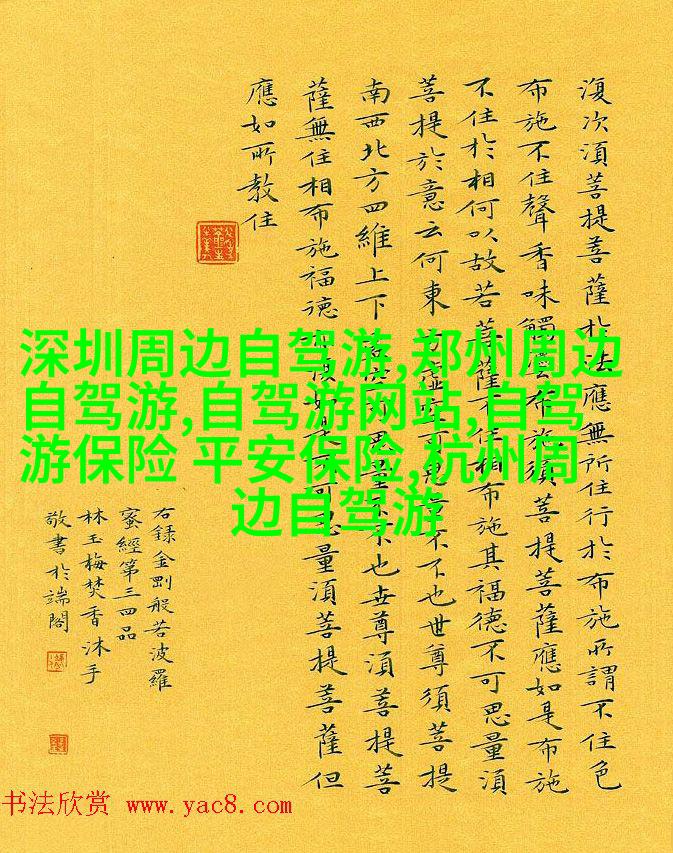 復次須菩提菩薩於法應無所住行於布施所謂不住色
布施不住聲香味觸法布施須菩提菩薩應如是布施
不住於相何以故若菩薩不住相布施其福德不可思量須
菩提於意云何東方虛空可思量不不也世尊須菩提
南西北方四維上下虛空可思量不不也世尊須菩提菩
薩無住相布施福德亦復如是不可思量須菩提菩薩但
應如所教住
右錄金剛般若波羅
蜜經第三四品
林玉梅焚香沐手
敬書於端閣
深圳周边自驾游,郑州周边
自驾游,自驾游网站,自驾
游保险 平安保险,杭州周
边自驾游
书法欣赏 www.yac8.com